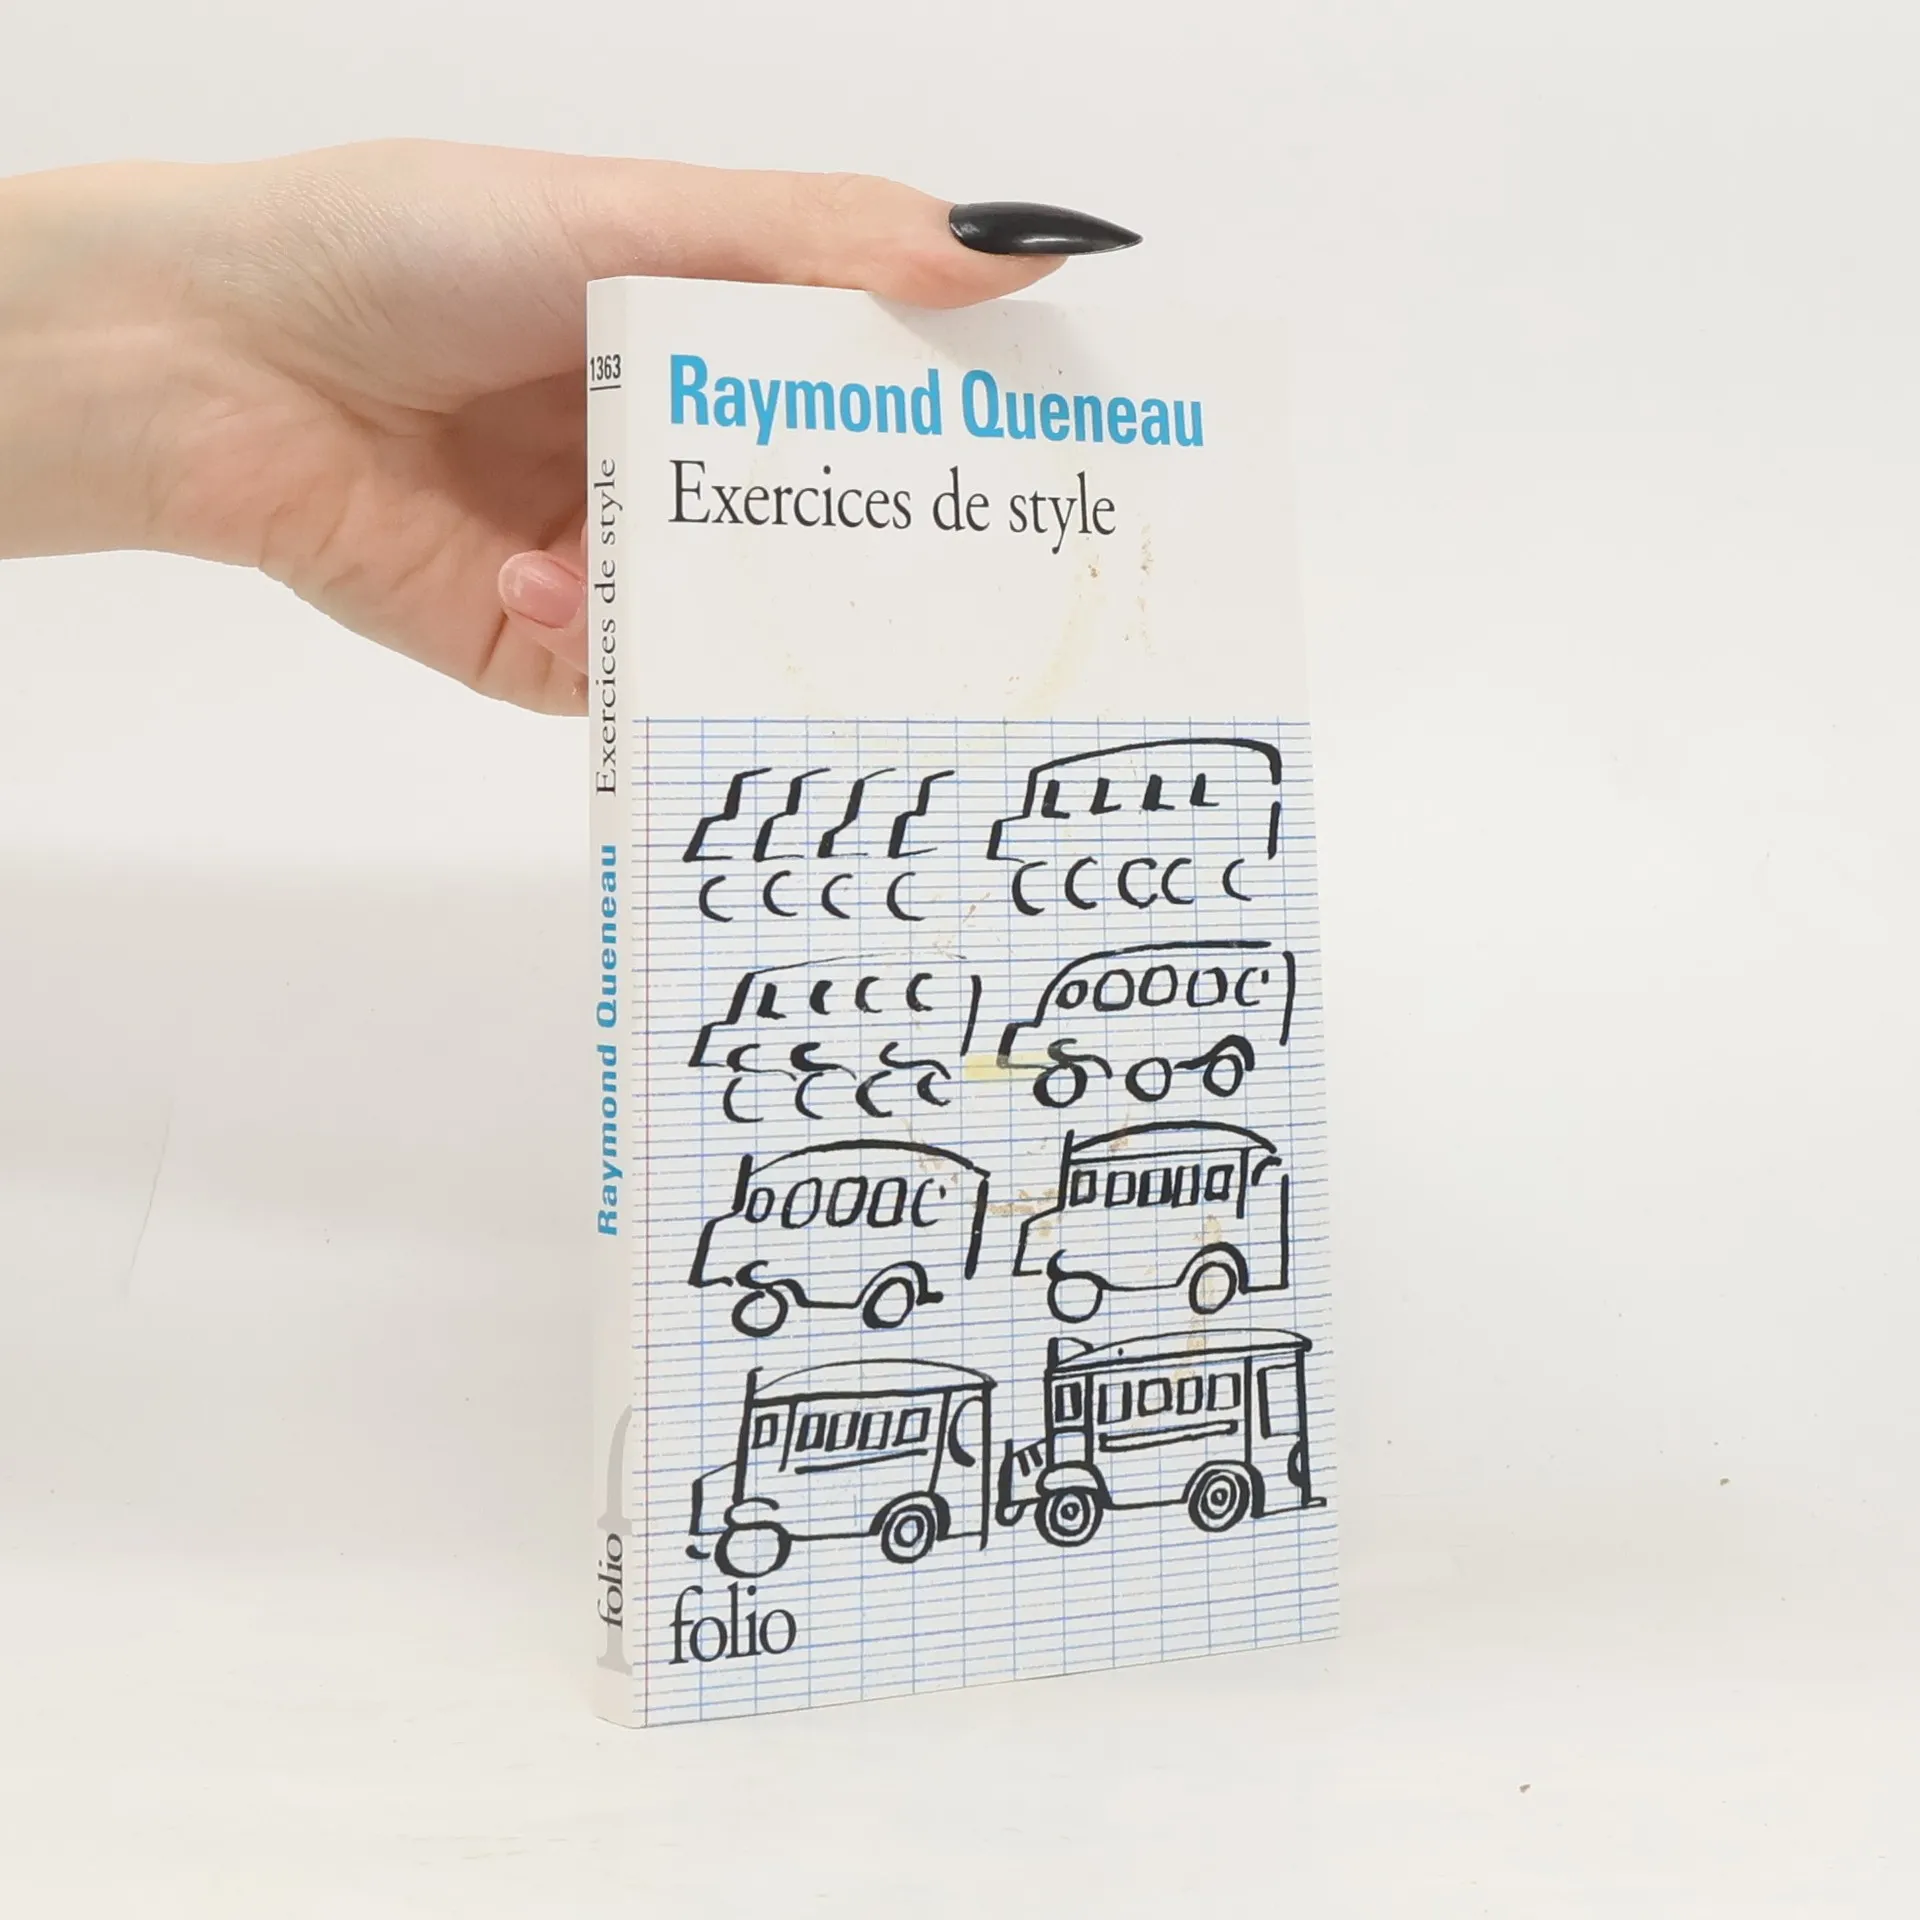 Raymond Queneau
Exercices de style
folio
1363
Exercices de style
Raymond Queneau
folio